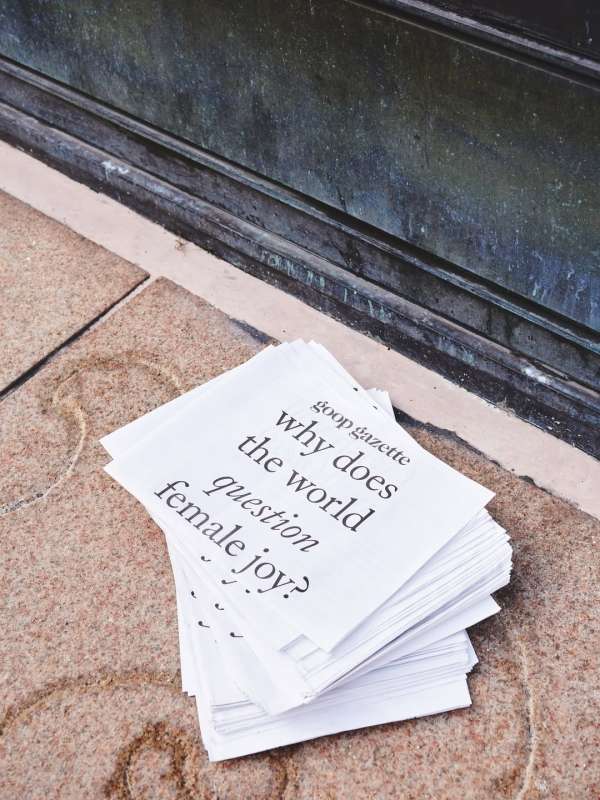 goop gazette
why does
the world
question
female joy?